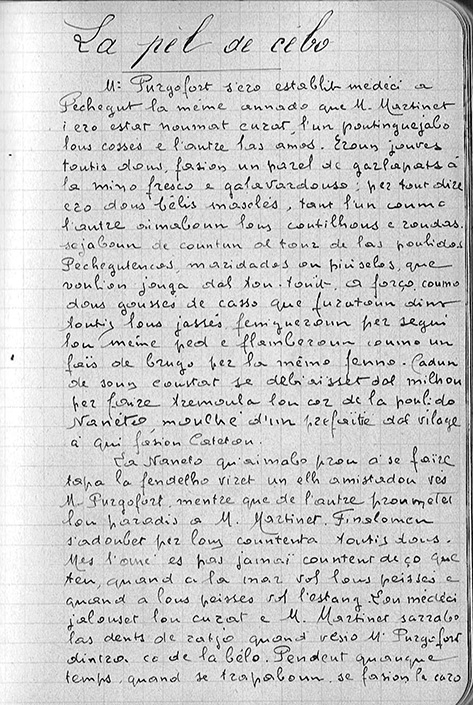 La pèl de cébo
M: Purgofort s'ero establit médéci a
Péchégut la méme annado que M. Martinet
i ero estat noumat curat, l'un poutinguejabo
lous cosses e l'autre las amos. Eroun jouves
toutis dous, fasion un parel de garlapats á
la mino fresco e galavardouso; per tout dire
ero dous bélis masclés, tant l'un coumo
l'autre aimaboun lous coutilhous e roudas-
sejaboun de countun al tour de las poulidos
Péchegutencos, maridados ou piuselos, que
voulion jouga dal tou-tout. A forço, coumo
dous gousses de casso que furatoun dins
toutis lous jassés, femigueroun per segui
lou méme ped e flamberoun coumo un
fais de brugo per la mémo fenno. Cadun
de soun coustat se débiaisset dal milhou
per faire tremoula lou cor de la poulido
Nanéto, moulhé d'un prefaitié dal vilage
á qui fasion Cateton.
La Naneto qu'aimabo prou á se faire
tapa la fendelho viret un elh amistadou vés
M. Purgofort, mentre que de l'autre proumetet
lou paradis a M. Martinet. Finalomen
s'adoubet per lous countenta toutis dous.
Mes l'omé es pas jamai countent de ço que
ten, quand a la mar vol lous peisses e
quand a lous peisses vol l'estang. Lou médéci
jalouset lou curat e M. Martinet sarrabo
las dents de ratjo quand vésio M. Purgofort
dintra co de la bélo. Pendent quauque
temps, quand se trapaboun, se fasion la caro